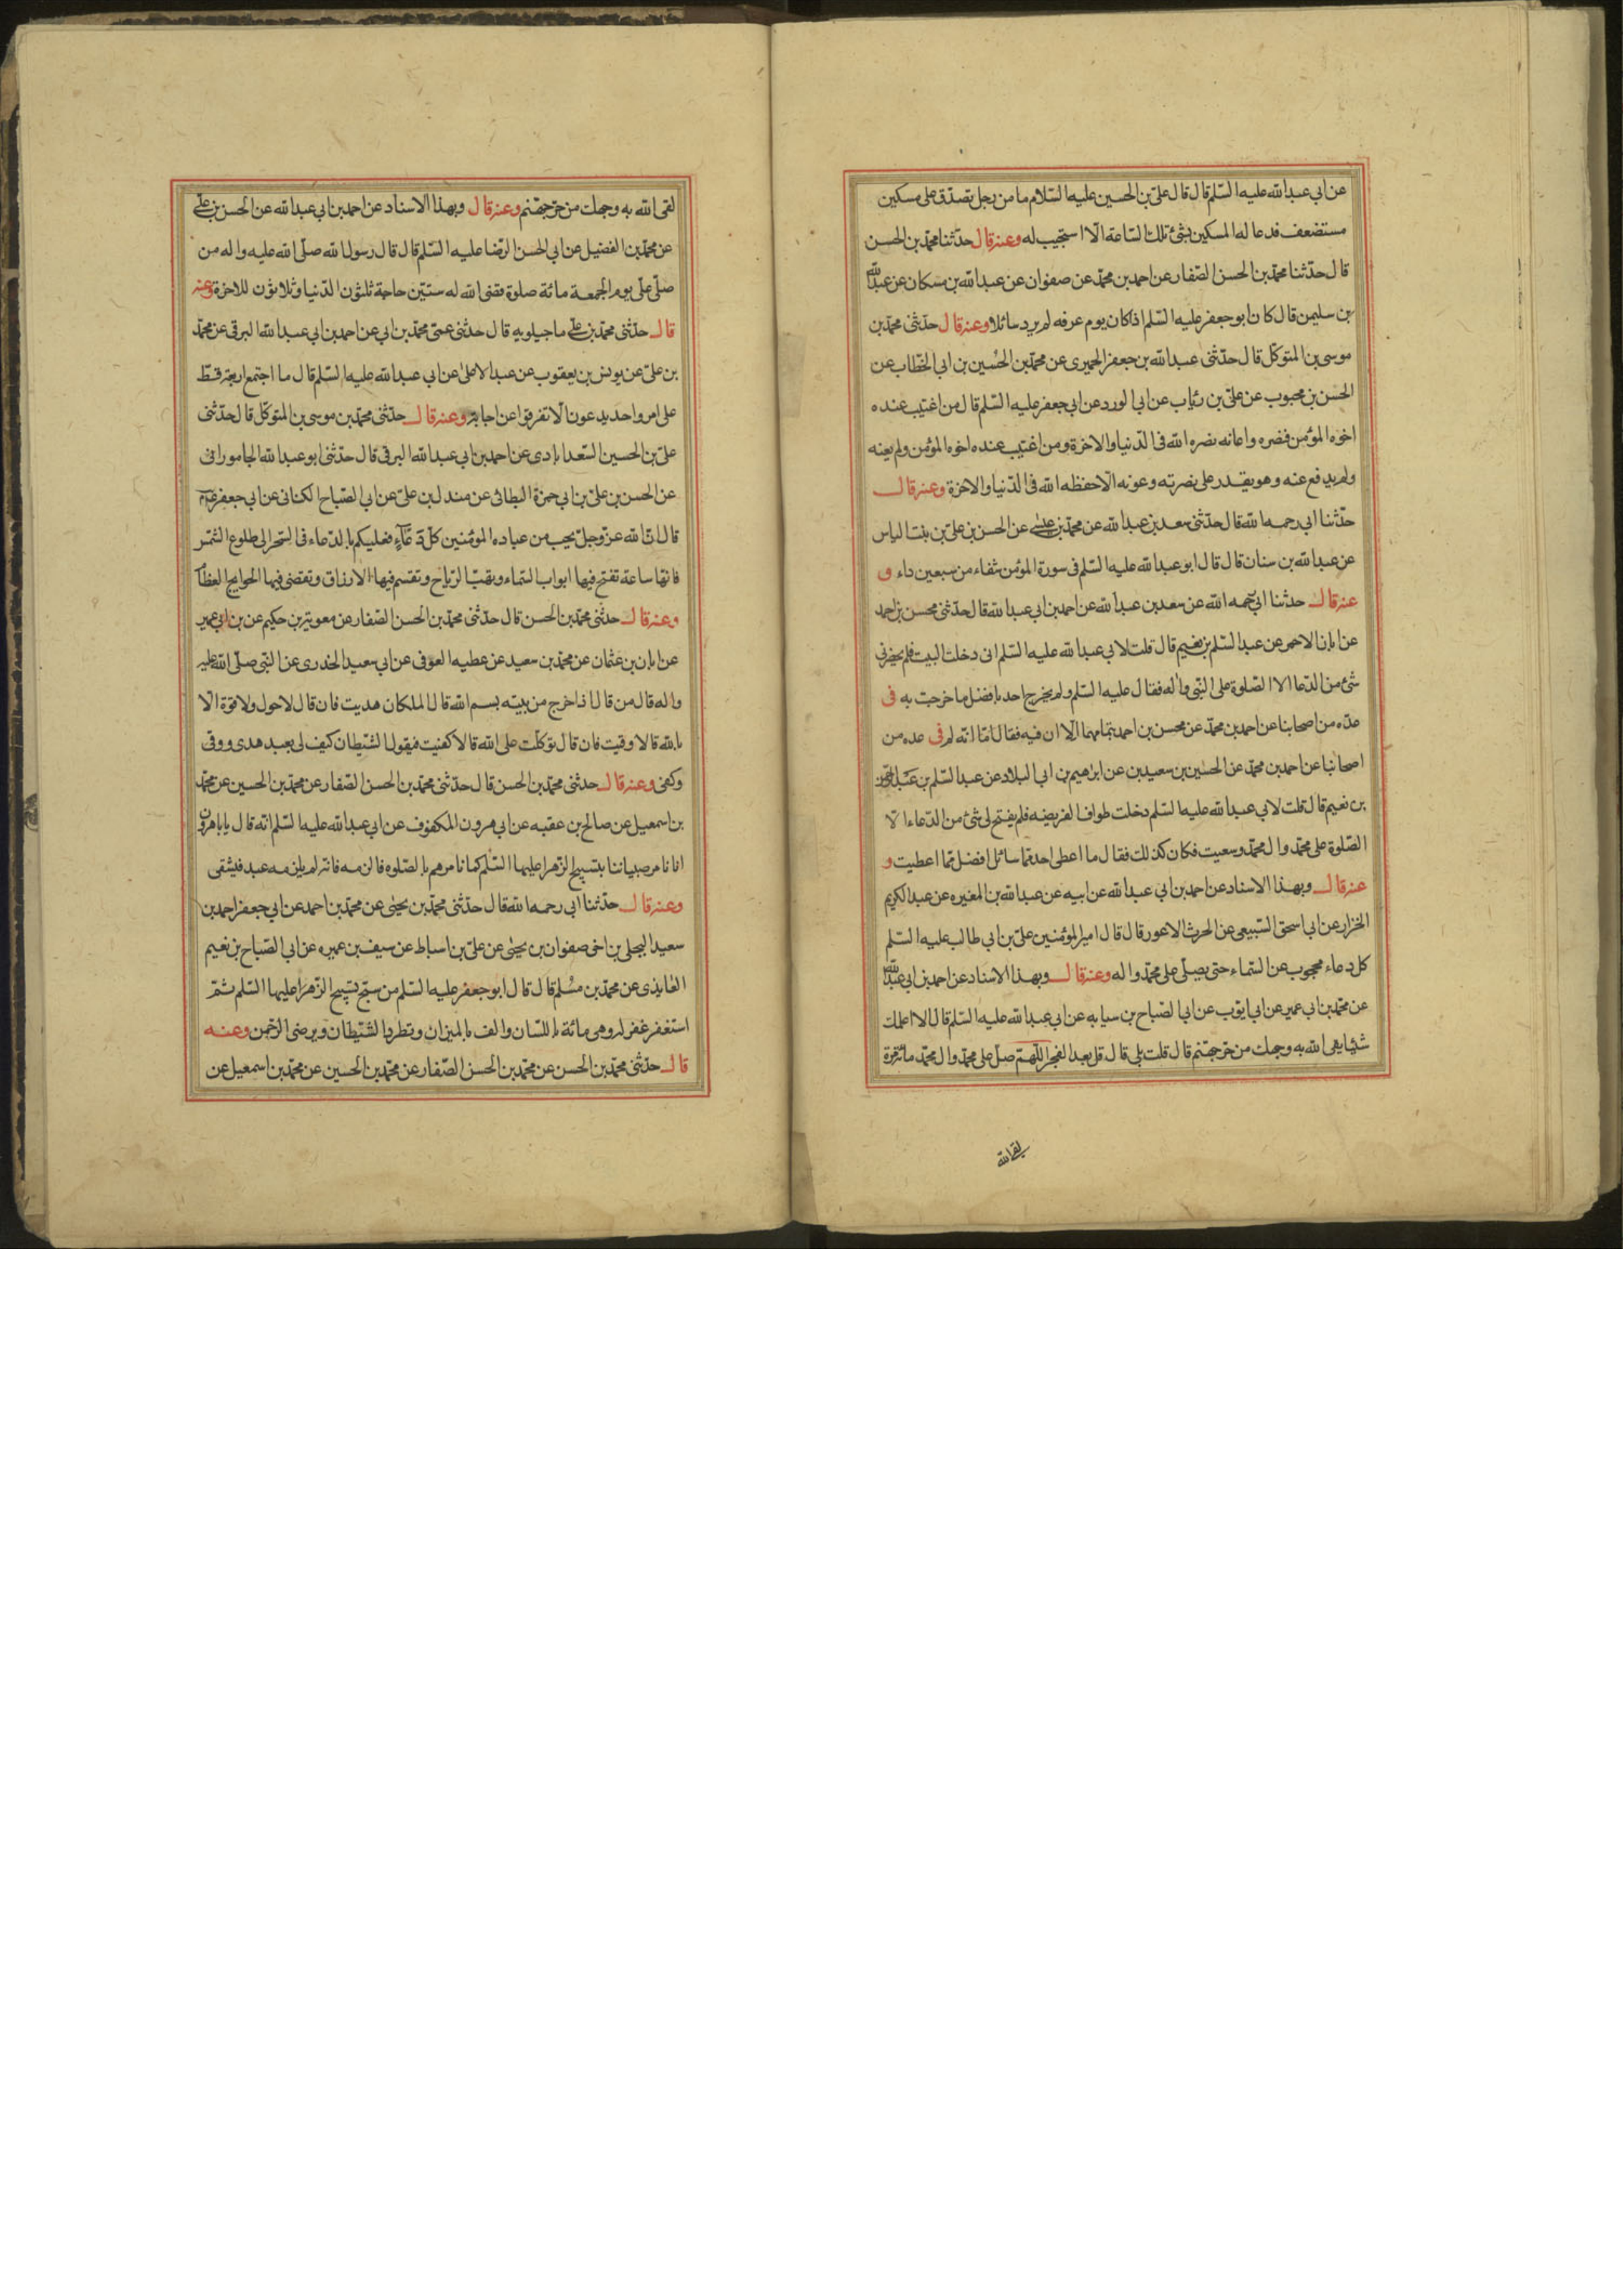 عن ابی عبد الله علیه السلم قال قال علی بن الحسین علیه السلام ما من رجل تصدق علی مسکین
مستضعف فدعا له المسکین بشئ تلک الساعة الا استجیب له وعنه قال حدثنا محمد بن الحسن
قال حدثنا محمد بن الحسن الصفار عن احمد بن محمد عن صفوان عن عبد الله بن مسکان عن عبد الله
بن سلیمن قال کان ابو جعفر علیه السلم اذا کان یوم عرفه لم یرد سائلا وعنه قال حدثنی محمد بن
موسی بن المتوکل قال حدثنی عبد الله بن جعفر الحمیری عن محمد بن الحسین بن ابی الخطاب عن
الحسن بن محبوب عن علی بن رئاب عن ابی الورد عن ابی جعفر علیه السلم قال من اغتیب عنده
اخوه المؤمن فنصره واعانه نصره الله فی الدنیا والاخرة ومن اغتیب عنده اخوه المؤمن ولم یعنه
ولم یدفع عنه وهو یقدر علی نصرته وعونه الا حفظه الله فی الدنیا والاخرة وعنه قال
حدثنا ابی رحمه الله قال حدثنی سعد بن عبد الله عن محمد بن عیسی عن الحسن بن علی بن بنت الیاس
عن عبد الله بن سنان قال قال ابو عبد الله علیه السلم فی سورة المؤمن شفاء من سبعین داء و
عنه قال حدثنا ابی رحمه الله عن سعد بن عبد الله عن احمد بن ابی عبد الله قال حدثنی محسن بن احمد
عن ابان الاحمر عن عبد السلم بن نعیم قال قلت لابی عبد الله علیه السلم انی دخلت البیت فلم یحضرنی
شئ من الدعا الا الصلوة علی النبی واله فقال علیه السلم ولم یخرج احد بافضل ما خرجت به فی
عده من اصحابنا عن احمد بن محمد عن محسن بن احمد بتمامها الا ان فیه فقال اما انه لم فی عده من
اصحابنا عن احمد بن محمد عن الحسین بن سعید بن عن ابرهیم بن ابی البلاد عن عبد السلم بن عبد الرحمن
بن نعیم قال قلت لابی عبد الله علیه السلم دخلت طواف الفریضه فلم یفتح لی شئ من الدعاء الا
الصلوة علی محمد وال محمد وسعیت فکان کذلک فقال ما اعطی احد مما سائل افضل مما اعطیت و
عنه قال وبهذا الاسناد عن احمد بن ابی عبد الله عن ابیه عن عبد الله بن المغیره عن عبد الکریم
الخزار عن ابی اسحق السبیعی عن الحرث الاعور قال قال امیر المؤمنین علی بن ابی طالب علیه السلم
کل دعاء محجوب عن السماء حتی یصلی علی محمد واله وعنه قال وبهذا الاسناد عن احمد بن ابی عبد الله
عن محمد بن ابی عمیر عن ابی ایوب عن ابی الصباح بن سیابه عن ابی عبد الله علیه السلم قال الا اعلمک
شیئا یقی الله به وجهک من حر جهنم قال قلت بلی قال قل بعد الفجر اللهم صل علی محمد وال محمد مائة مرة
یقی الله
لقی الله به وجهک من حر جهنم وعنه قال وبهذا الاسناد عن احمد بن ابی عبد الله عن الحسن بن علی
عن محمد بن الفضیل عن ابی الحسن الرضا علیه السلم قال قال رسول الله صلی الله علیه واله من
صلی علی یوم الجمعة مائة صلوة قضی الله له ستین حاجة ثلثون الدنیا وثلاثون للاخرة وعنه
قال حدثنی محمد بن علی ماجیلویه قال حدثنی عمی محمد بن ابی عن احمد بن ابی عبد الله البرقی عن محمد
بن علی عن یونس بن یعقوب عن عبد الاعلی عن ابی عبد الله علیه السلم قال ما اجتمع اربعة قط
علی امر واحد یدعون الا تفرقوا عن اجابة وعنه قال حدثنی محمد بن موسی بن المتوکل قال حدثنی
علی بن الحسین السعدابادی عن احمد بن ابی عبد الله البرقی قال حدثنی ابو عبد الله الجامورانی
عن الحسن بن علی بن ابی حمزة البطائنی عن مندل بن علی عن ابی الصباح الکنانی عن ابی جعفر
قال ان الله عز وجل یحب من عباده المؤمنین کل دعاء فعلیکم بالدعاء فی السحر الی طلوع الشمس
فانها ساعة تفتح فیها ابواب السماء وتهب الریاح وتقسم فیها الارزاق وتقضی فیها الحوایج العظام
وعنه قال حدثنی محمد بن الحسن قال حدثنی محمد بن الحسن الصفار عن معویة بن حکیم عن بن ابی عمیر
عن ابان بن عثمان عن محمد بن سعید عن عطیه العوفی عن ابی سعید الخدری عن النبی صلی الله علیه
واله قال من قال اذا خرج من بیته بسم الله قال الملکان هدیت فان قال لا حول ولا قوة الا
بالله قالا وقیت فان قال توکلت علی الله قالا کفیت فیقول الشیطان کیف لی بعبد هدی ووقی
وکفی وعنه قال حدثنی محمد بن الحسن قال حدثنی محمد بن الحسن الصفار عن محمد بن الحسین عن محمد
بن اسمعیل عن صالح بن عقبه عن ابی هرون المکفوف عن ابی عبد الله علیه السلم انه قال یا ابا هرون
انا نامر صبیاننا بتسبیح الزهرا علیها السلم کما نامرهم بالصلوه فالزمه فانه لم یلزمه عبد فیشقی
وعنه قال حدثنا ابی رحمه الله قال حدثنی محمد بن یحیی عن محمد بن احمد عن ابی جعفر احمد بن
سعید البجلی بن اخی صفوان بن یحیی عن علی بن اسباط عن سیف بن عمیره عن ابی الصباح بن نعیم
العایذی عن محمد بن مسلم قال قال ابو جعفر علیه السلم من سبح تسبیح الزهرا علیها السلم ثم
استغفر غفر له وهی مائة باللسان والف بالمیزان وتطرد الشیطان ویرضی الرحمن وعنه
قال حدثنی محمد بن الحسن عن محمد بن الحسن الصفار عن محمد بن الحسین عن محمد بن اسمعیل عن